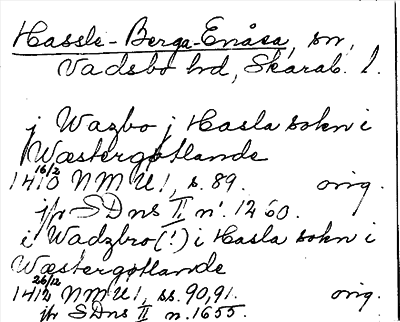 Hassle-Berga-Enåsa, sn,
Vadsbo hd, Skarab. l.
j Wazbo j Hasla sokn i
Wæstergøtlande
16/2
1410 NMU1, s. 89. orig.
jfr SDns II n. 1260.
i Wadzbro(!) i Hasla sokn i
Wæstergøtlande
26/12
1412 NMU1, ss. 90, 91. orig.
jfr SDns II n. 1655.